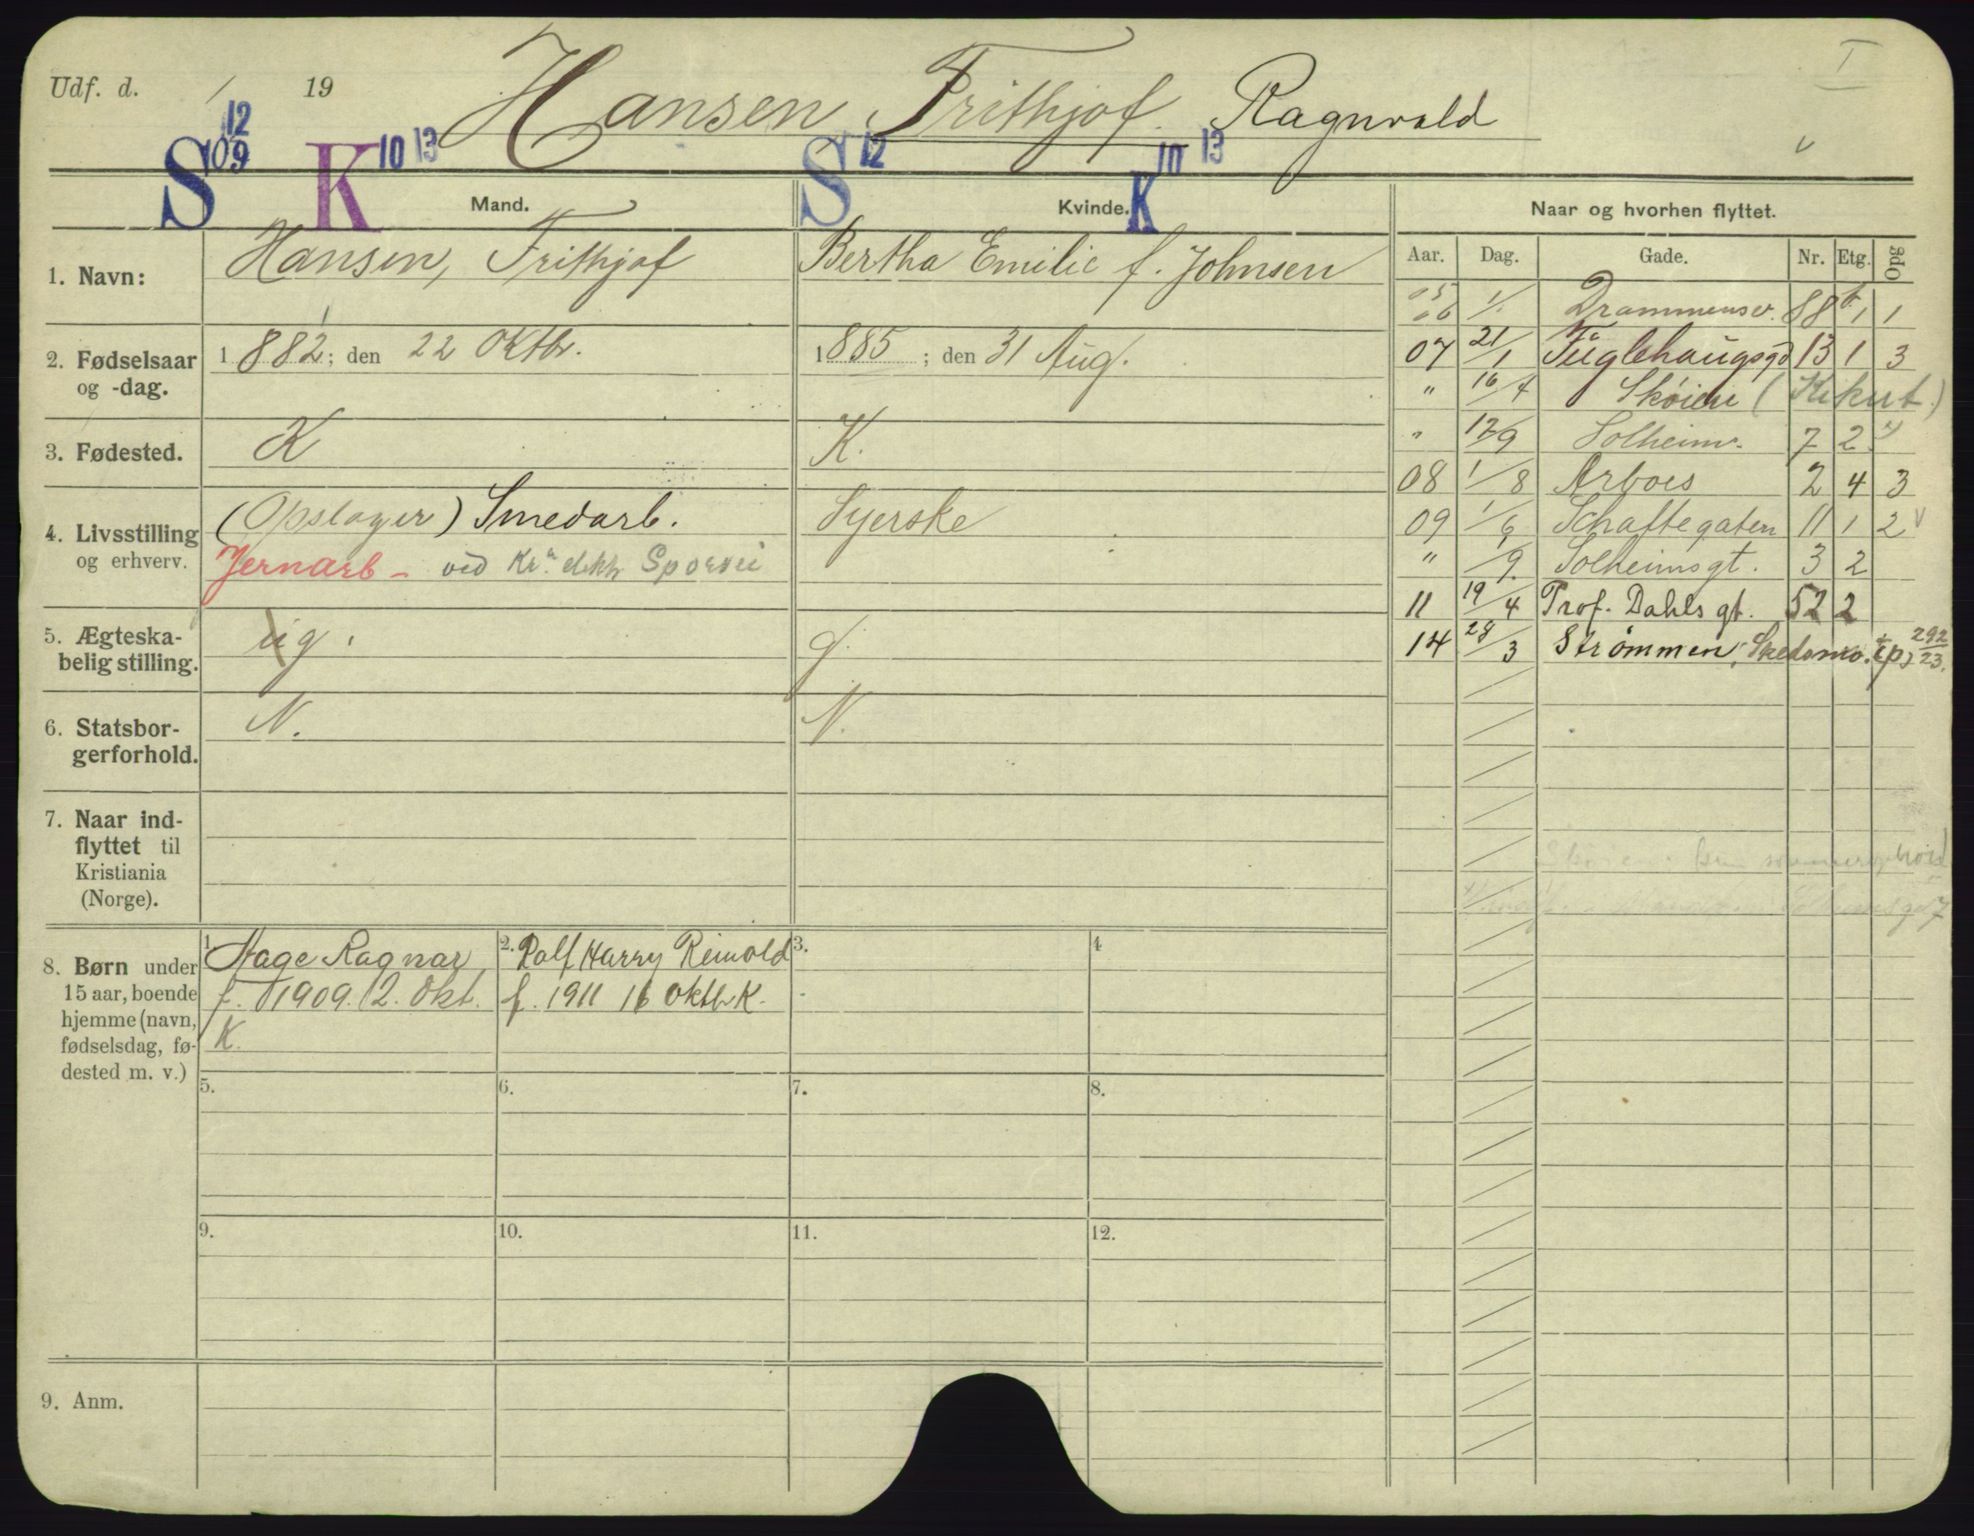 Udf. d. / 19
Hansen, Frithjof. Ragnvald
I
S 12 09 K 10 13 S 12 K 10 13
Mand. Kvinde. Naar og hvorhen flyttet.
Aar. Dag. Gade. Nr. Etg. Opg
1. Navn: Hansen, Frithjof Bertha Emilie f. Johnsen
2. Fødselsaar og -dag. 1882; den 22 Oktbr. 1885; den 31 Aug.
3. Fødested. K K.
4. Livsstilling og erhverv. (Opslager) Smedarb. Syerske
Jernarb - ved Kr.a elektr Sporvei
5. Ægteska-
belig stilling. ug. g.
6. Statsbor-
gerforhold. N. N.
7. Naar ind-
flyttet til
Kristiania
(Norge).
05
06 1/ Drammensv. 88 b 1 1
07 21/1 Fuglehaugsgd 13 1 3
" 16/4 Skøien (Kikut)
" 17/9 Solheimv. 7 2
08 1/8 Arboes 2 4 3
09 1/6 Schaftegaten 11 1 2 v
" /9 Solheimsgt. 3 2
11 19/4 Prof. Dahls gt. 52 2
14 28/3 Strømmen, Skedsmo. tp, 292/23.
Skøien: kun sommerophold
8. Børn under
15 aar, boende
hjemme (navn,
fødselsdag, fø-
dested m. v.)
1. Aage Ragnar
f. 1909. 2. Okt.
K.
2. Rolf Harry Reinold
f. 1911 16 Oktb K.
3.
4
5.
6.
7.
8.
9.
10.
11.
12.
9. Anm.